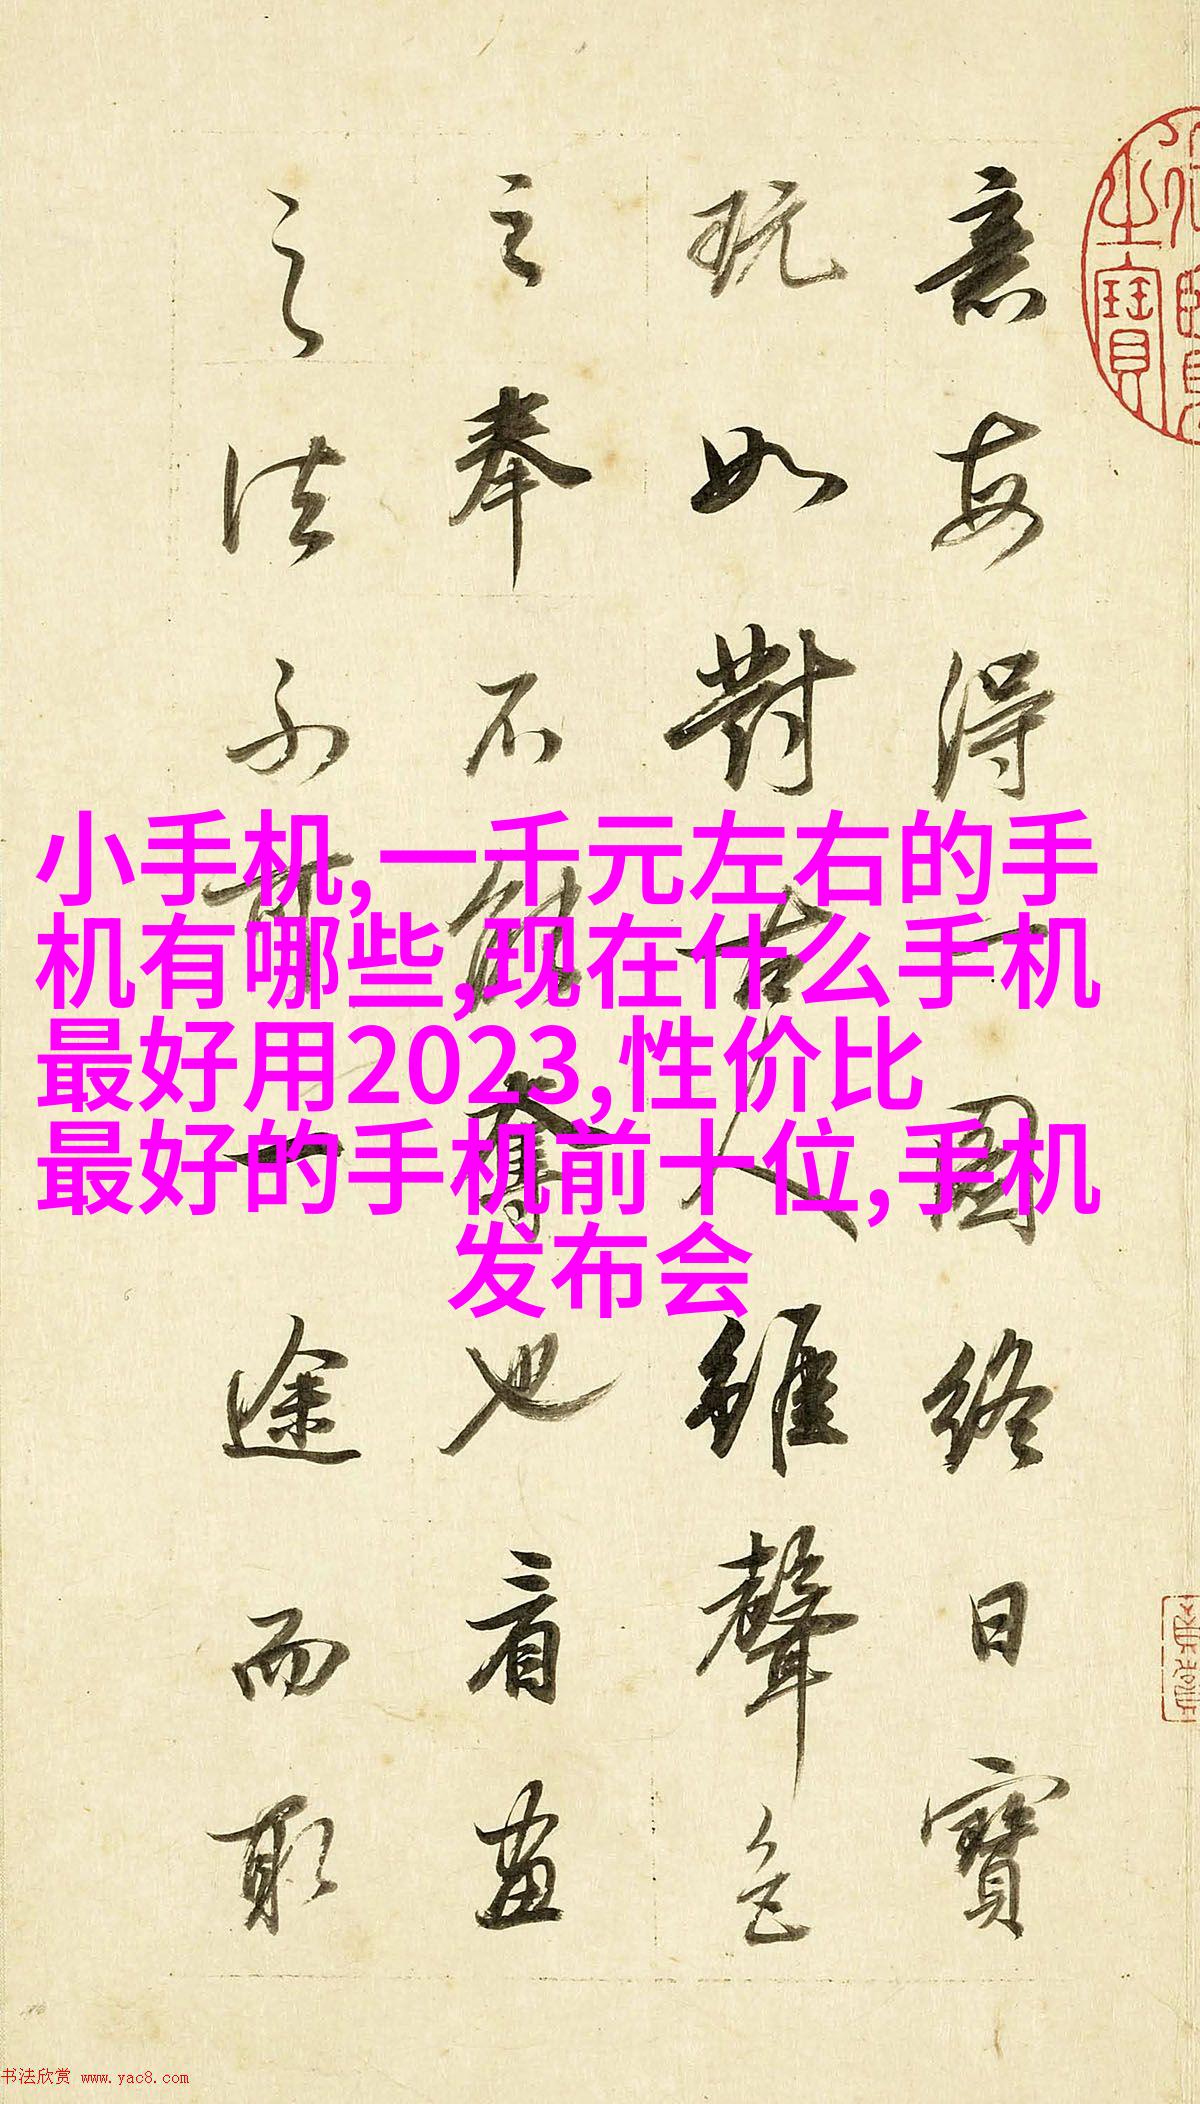 意每得一圖終日寶
玩如對古人雖聲色
之奉不能奪也看畫
之法不可一途而取
之寶
小手机,一千元左右的手
机有哪些,现在什么手机
最好用2023,性价比
最好的手机前十位,手机
发布会
书法欣赏 www.yac8.com